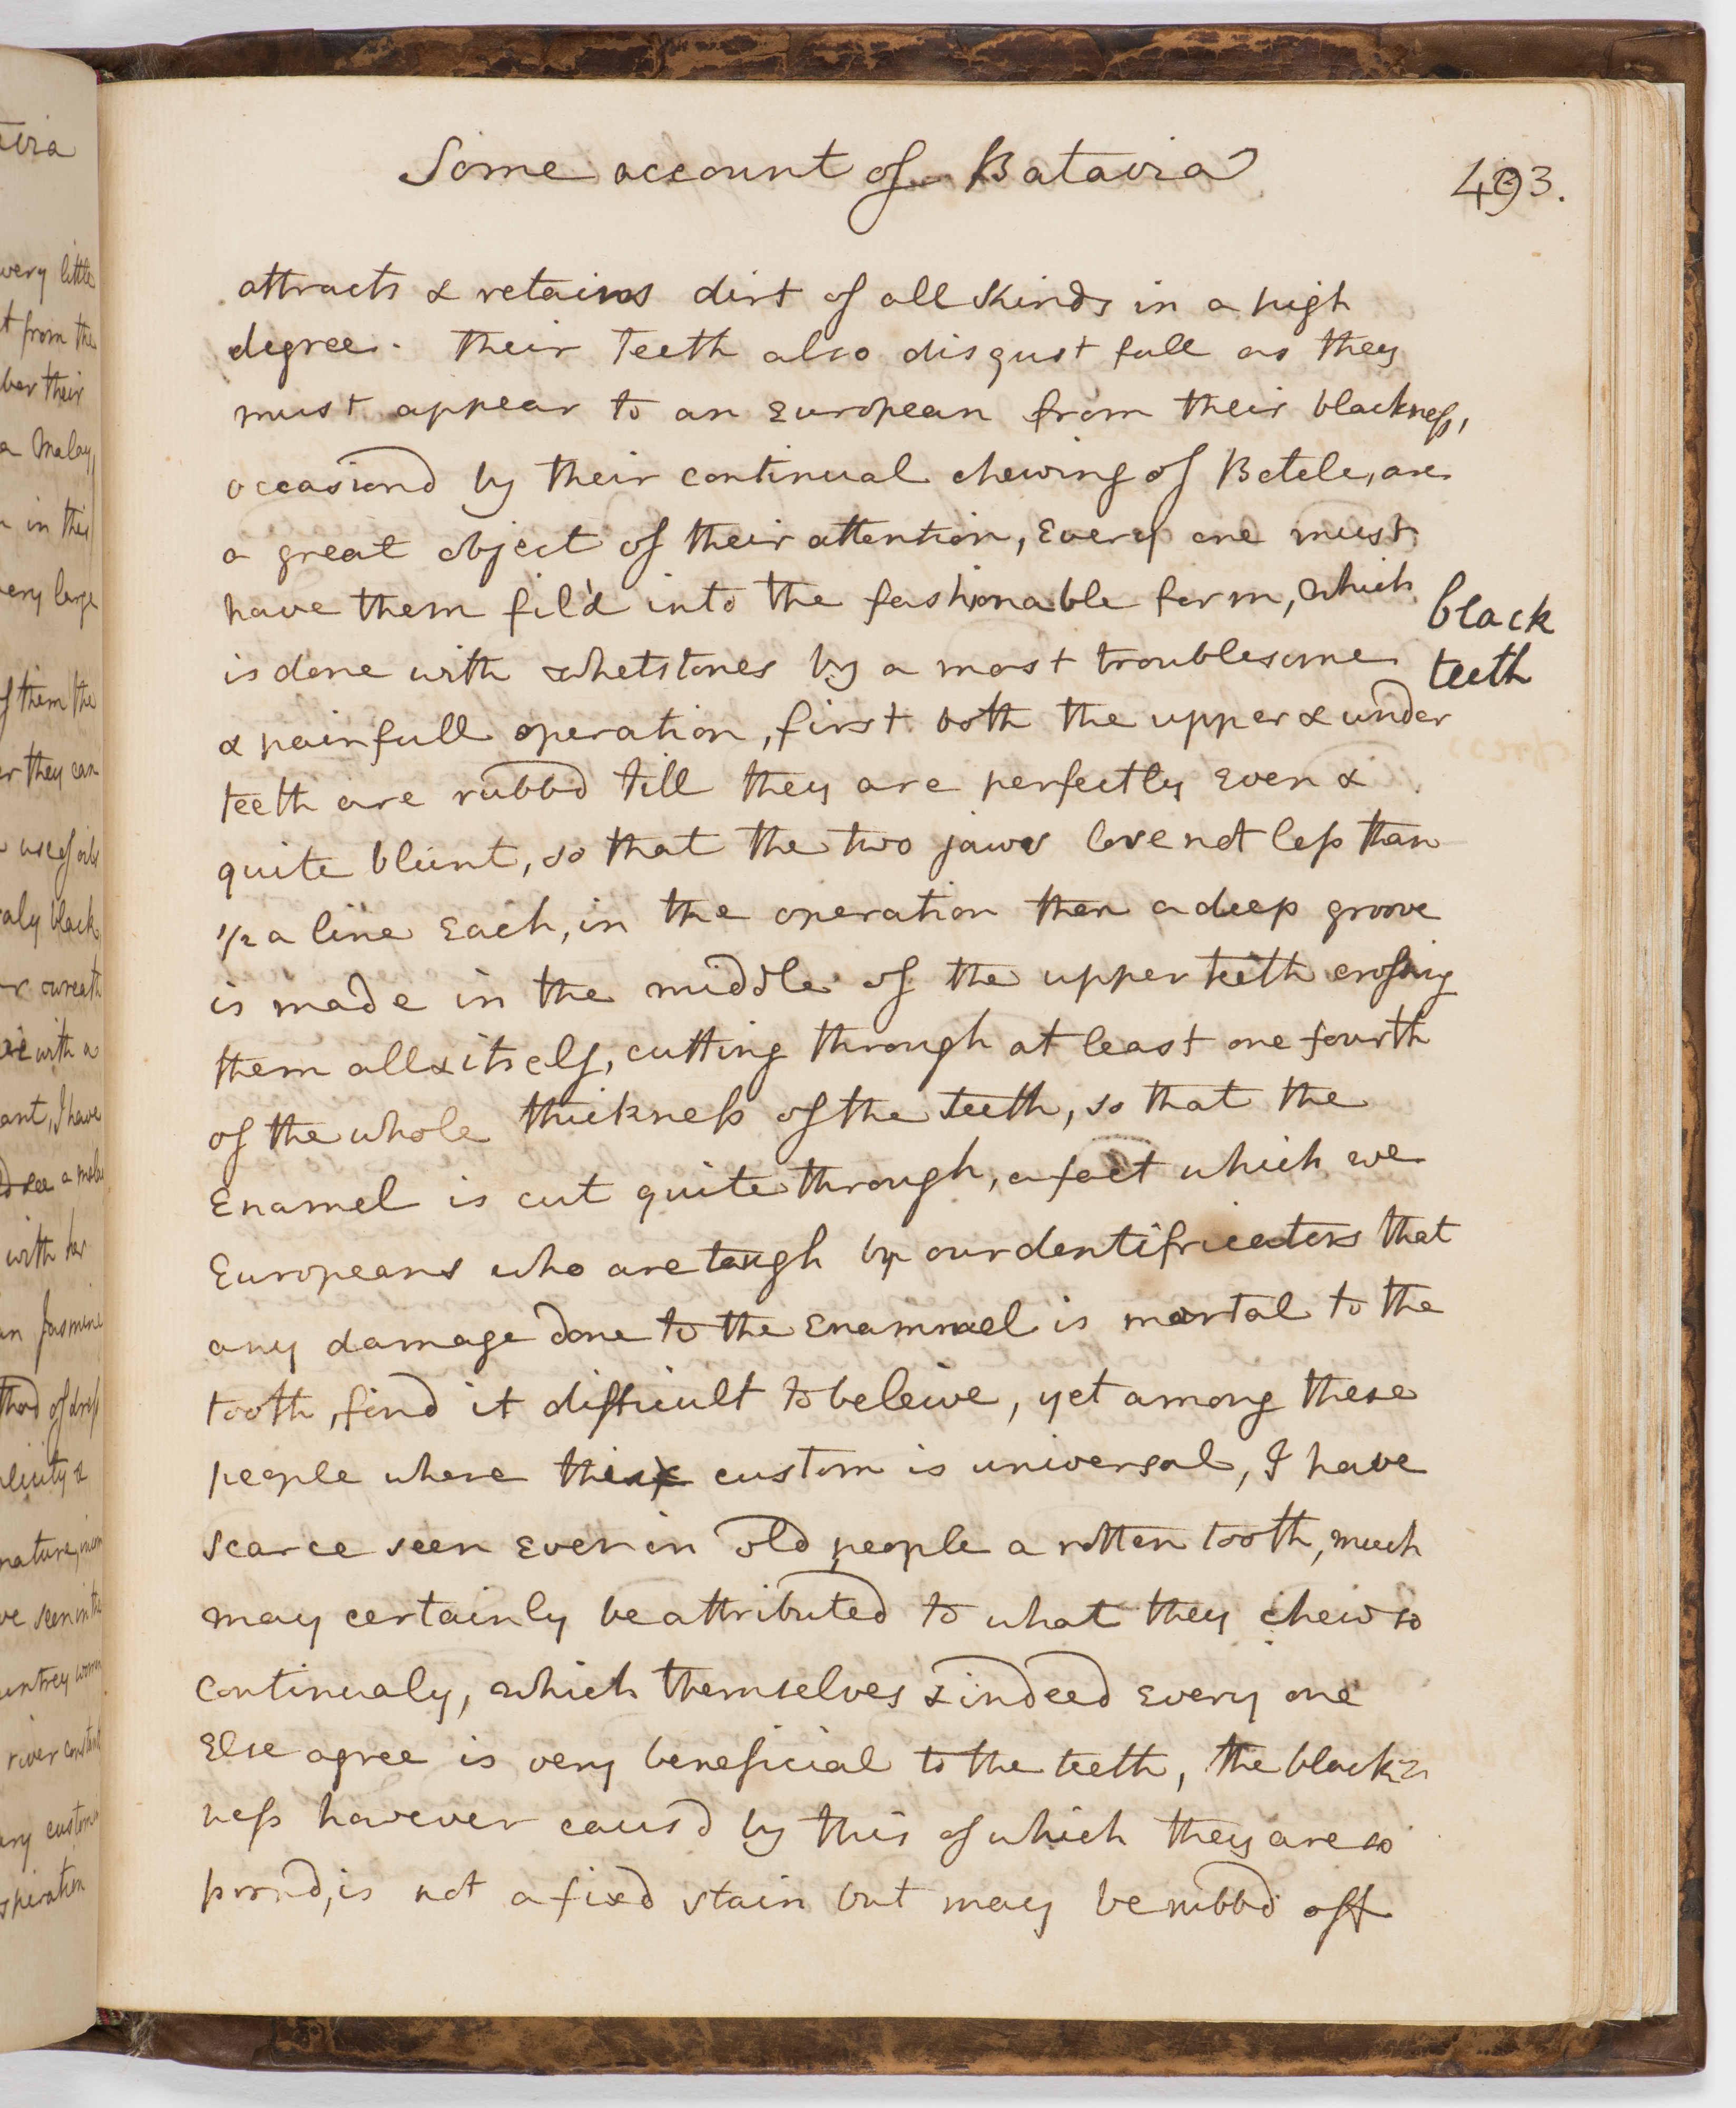 Some account of Batavia
493.
attracts & retains dirt of all Kinds in a high
degree. their teeth also disgust full as they
must appear to an European from their blackness,
occasiond by their continual chewing of Betele, are
a great object of their attention, Every one must
have them fil'd into the fashionable form, which
is done with whetstones by a most troublesome
black
teeth
& painfull operation, first both the upper & under
teeth are rubbd till they are perfectly even &
quite blunt, so that the two jaws lose not less than
1/2 a line Each, in the operation then a deep groove
is made in the middle of the upper teeth crossing
them all & itself, cutting through at least one fourth
of the whole thickness of the teeth, so that the
Enamel is cut quite through, a fact which we
Europeans who are taugh by our dentifricators that
any damage done to the Enammel is mortal to the
tooth, find it difficult to beleive, yet among these
people where this custom is universal, I have
scarce seen even in old people a rotten tooth, much
may certainly be attributed to what they chew so
continualy, which themselves & indeed every one
Else agree is very beneficial to the teeth, the black=
ness however causd by this of which they are so
proud, is not a fixd stain but may be rubbd off
avia
very little
t from the
ber their
a Malay,
in this
very large
of them the
er they can
use of oils
aly black,
wreath
with a
ant, I have
see a
with her
an Jasmine
thod of dress
plicity &
nature,
ve seen in the
untrey women
river
ary custom
spiration